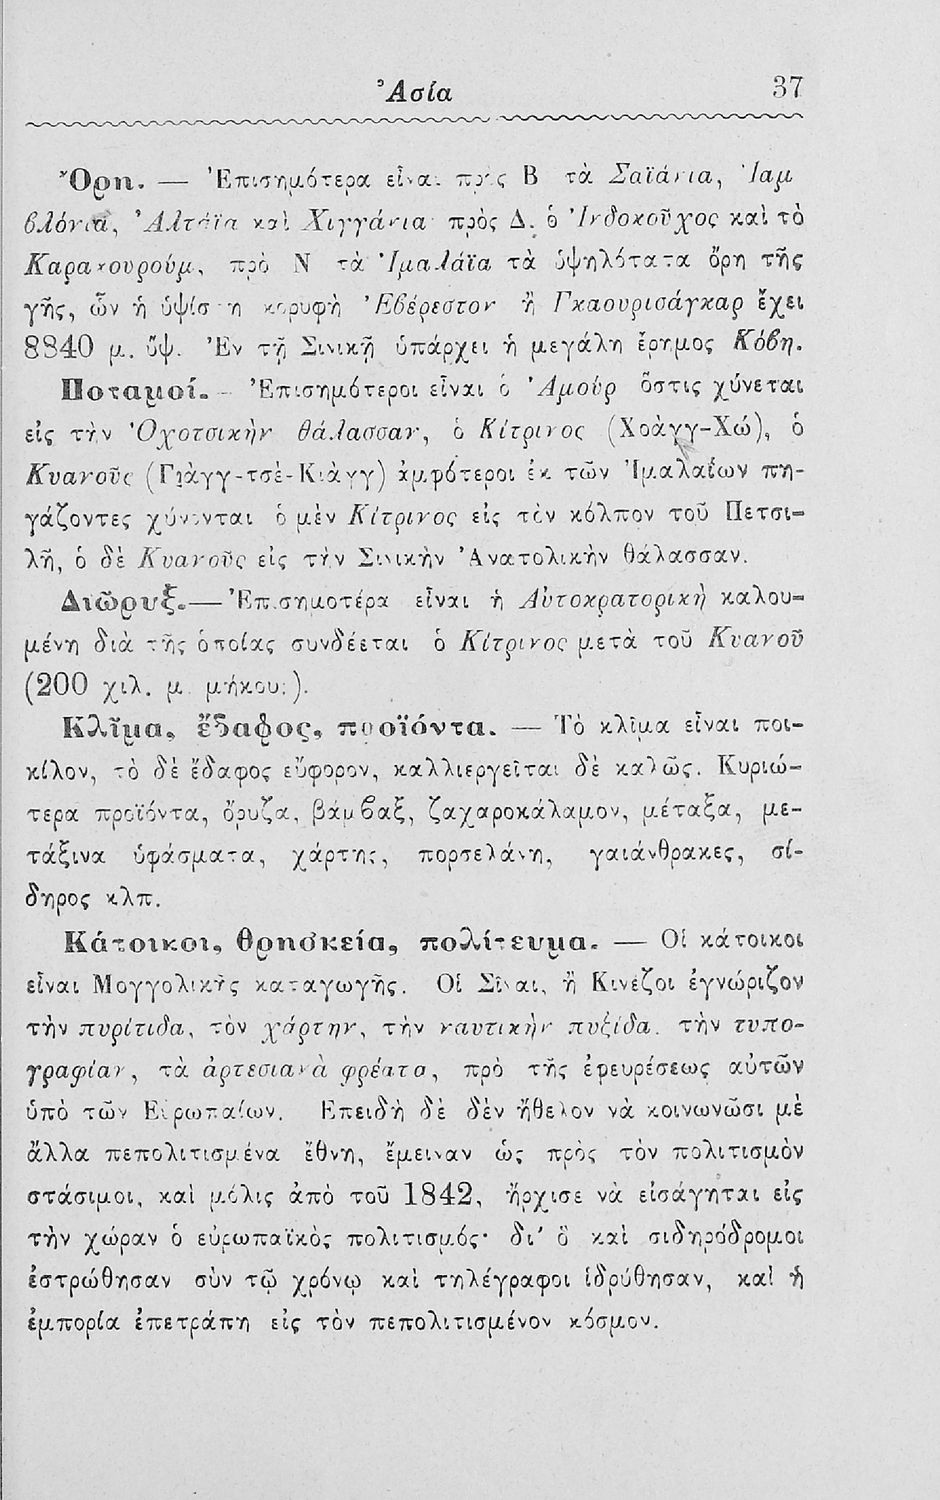 Ἀσία 37
Ὄρη. — Ἐπισημότερα εἶναι πρὸς Β τὰ Σαϊάνια, Ἰαμ
βλόνια, Ἀλτάϊα καὶ Χιγγάνια πρὸς Δ. ὁ Ἰνδοκοῦχος καὶ τὸ
Καρακουρούμ, πρὸ Ν τὰ Ἰμαλάϊα τὰ ὑψηλότατα ὄρη τῆς
γῆς, ὧν ἡ ὑψίστη κορυφὴ Ἐβέρεστον ἢ Γκαουρισάγκαρ ἔχει
8840 μ. ὕψ. Ἐν τῇ Σινικῇ ὑπάρχει ἡ μεγάλη ἔρημος Κόβη.
Ποταμοί. — Ἐπισημότεροι εἶναι ὁ Ἀμοὺρ ὅστις χύνεται
εἰς τὴν Ὀχοτσικὴν θάλασσαν, ὁ Κίτρινος (Χοὰγγ-Χώ), ὁ
Κυανοῦς (Γιὰγγ-τσὲ-Κιὰγγ) ἀμφότεροι ἐκ τῶν Ἱμαλαΐων πη-
γάζοντες χύνονται ὁ μὲν Κίτρινος εἰς τὸν κόλπον τοῦ Πετσι-
λῆ, ὁ δὲ Κυανοῦς εἰς τὴν Σινικὴν Ἀνατολικὴν θάλασσαν.
Διῶρυξ.— Ἐπισημοτέρα εἶναι ἡ Αὐτοκρατορικὴ καλου-
μένη διὰ τῆς ὁποίας συνδέεται ὁ Κίτρινος μετὰ τοῦ Κυανοῦ
(200 χιλ. μ. μήκους).
Κλῖμα, ἔδαφος, προϊόντα. — Τὸ κλῖμα εἶναι ποι-
κίλον, τὸ δὲ ἔδαφος εὔφορον, καλλιεργεῖται δὲ καλῶς. Κυριώ-
τερα προϊόντα, ὄρυζα, βάμβαξ, ζαχαροκάλαμον, μέταξα, με-
τάξινα ὑφάσματα, χάρτης, πορσελάνη, γαιάνθρακες, σί-
δηρος κλπ.
Κάτοικοι, θρησκεία, πολίτευμα. — Οἱ κάτοικοι
εἶναι Μογγολικῆς καταγωγῆς. Οἱ Σῖναι, ἢ Κινέζοι ἐγνώριζον
τὴν πυρίτιδα, τὸν χάρτην, τὴν ναυτικὴν πυξίδα. τὴν τυπο-
γραφίαν, τὰ ἀρτεσιανὰ φρέατα, πρὸ τῆς ἐφευρέσεως αὐτῶν
ὑπὸ τῶν Εὐρωπαίων. Ἐπειδὴ δὲ δὲν ἤθελον νὰ κοινωνῶσι μὲ
ἄλλα πεπολιτισμένα ἔθνη, ἔμειναν ὡς πρὸς τὸν πολιτισμὸν
στάσιμοι, καὶ μόλις ἀπὸ τοῦ 1842, ἤρχισε νὰ εἰσάγηται εἰς
τὴν χώραν ὁ εὐρωπαϊκὸς πολιτισμός· δι' ὃ καὶ σιδηρόδρομοι
ἐστρώθησαν σὺν τῷ χρόνῳ καὶ τηλέγραφοι ἱδρύθησαν, καὶ ἡ
ἐμπορία ἐπετράπη εἰς τὸν πεπολιτισμένον κόσμον.